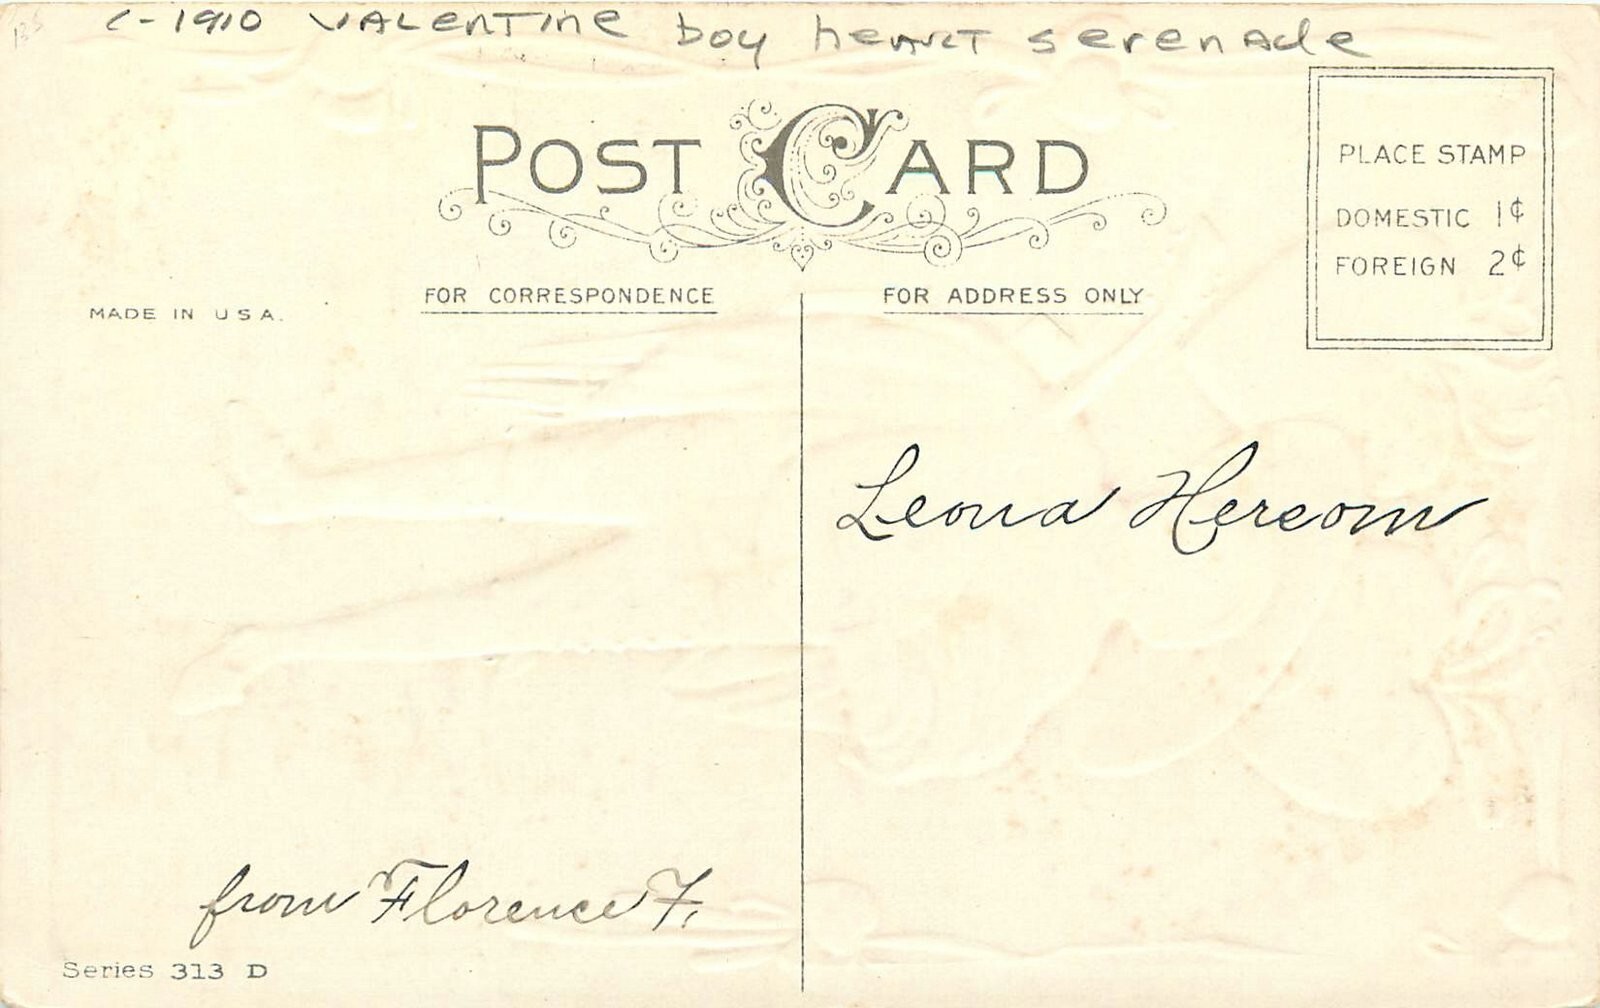 c-1910 VALENTINE boy heart serenade
POST CARD
PLACE STAMP
DOMESTIC 1¢
FOREIGN 2¢
FOR CORRESPONDENCE
FOR ADDRESS ONLY
MADE IN U S A.
Leona Hercom
from Florence F.
Series 313 D